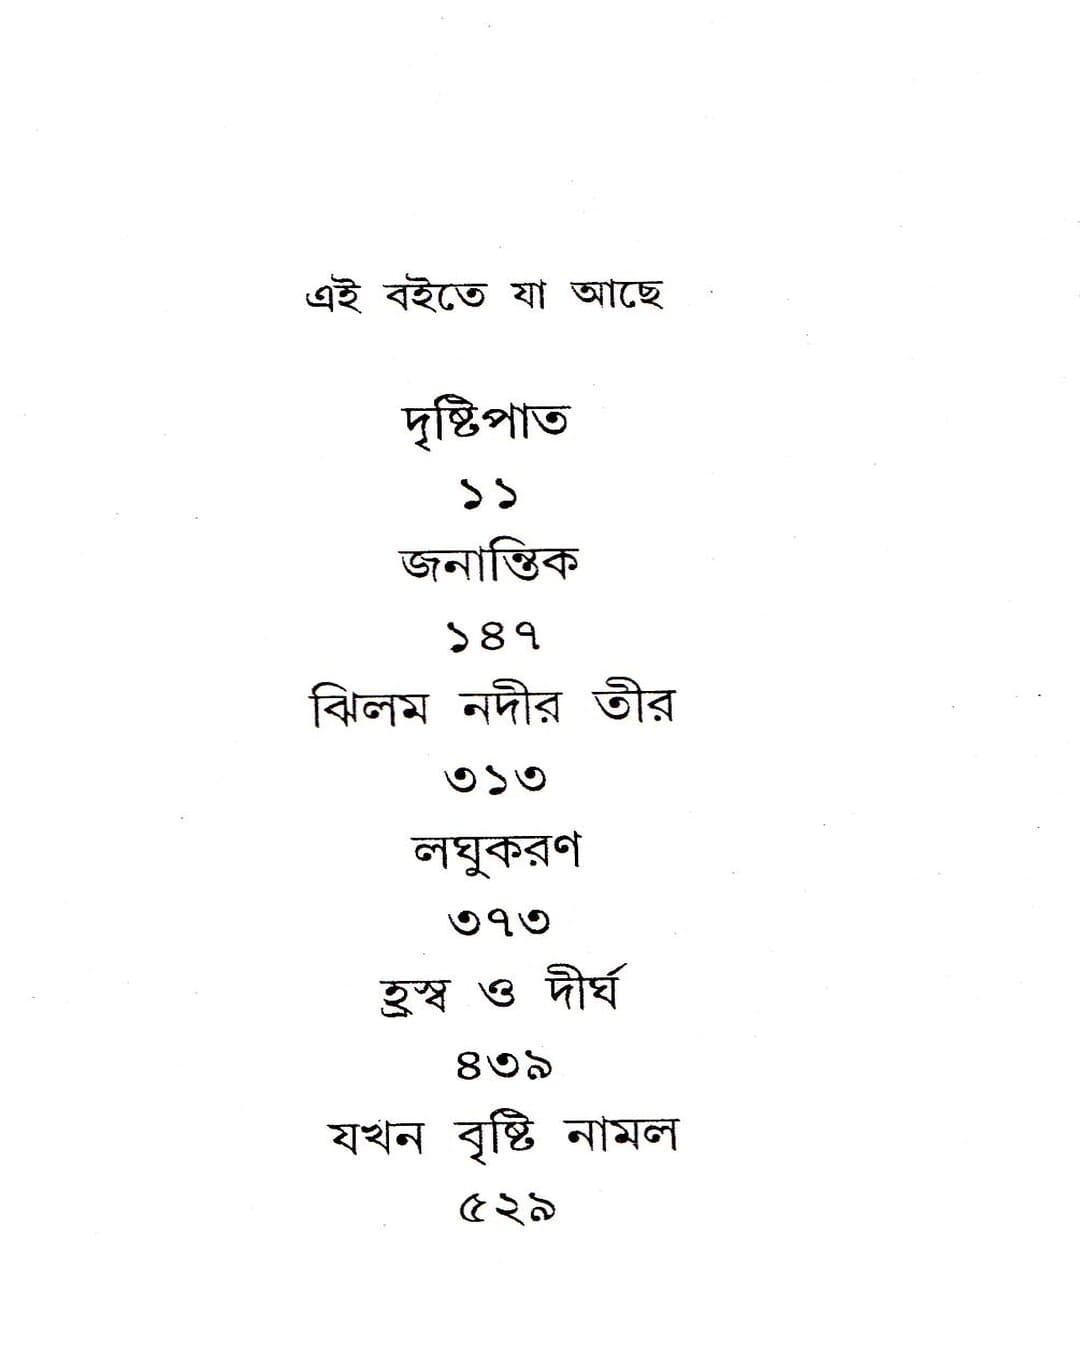 এই বইতে যা আছে
দৃষ্টিপাত
১১
জনান্তিক
১৪৭
ঝিলম নদীর তীর
৩১৩
লঘুকরণ
৩৭৩
হ্রস্ব ও দীর্ঘ
৪৩৯
যখন বৃষ্টি নামল
৫২৯